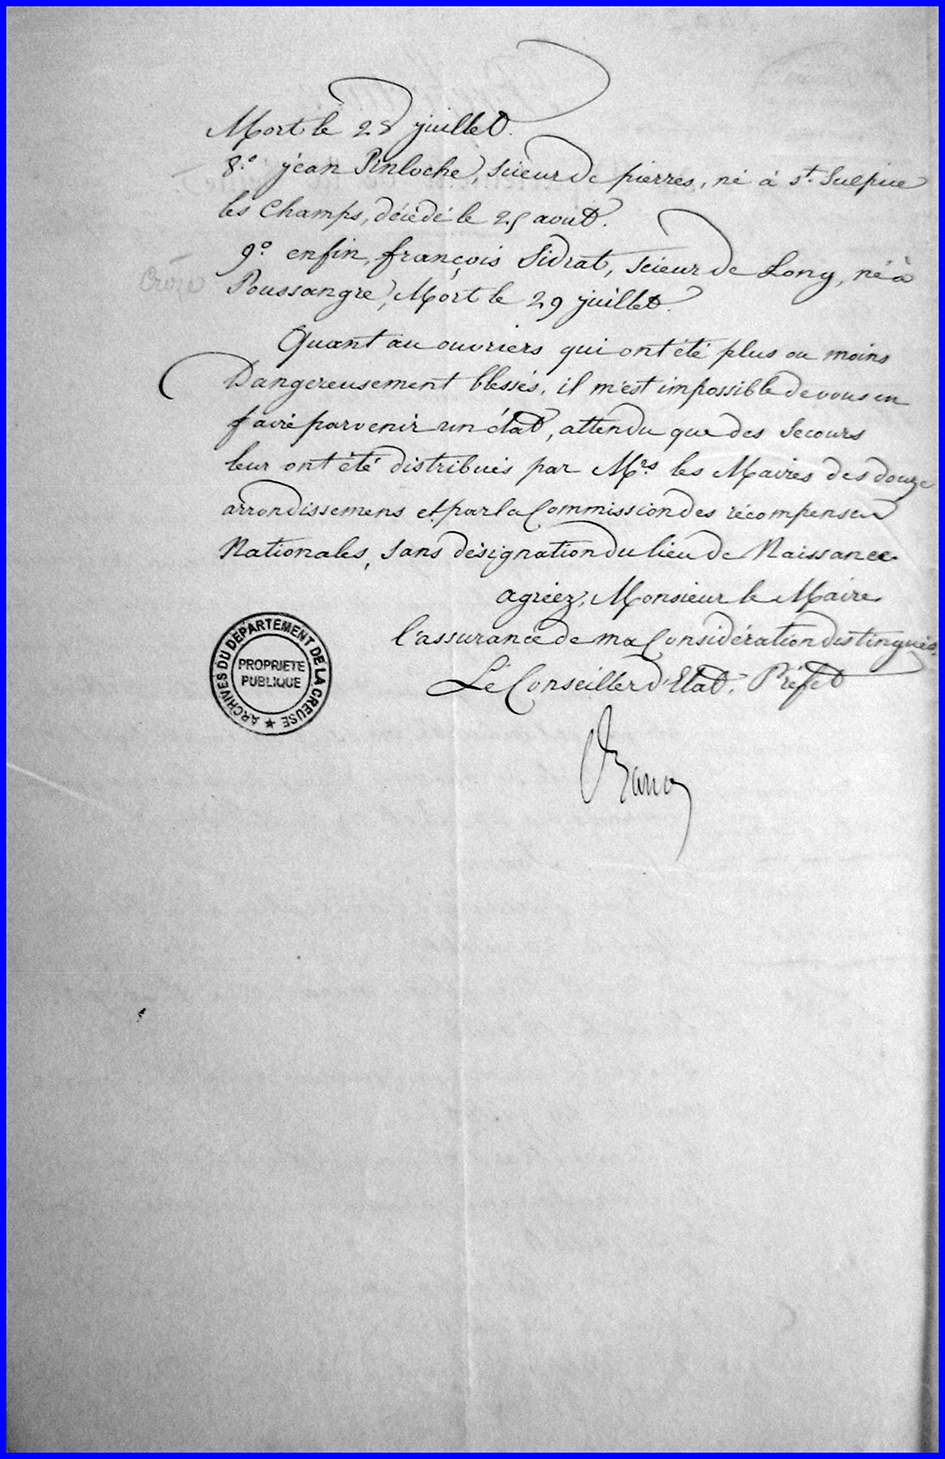 Mort le 28 juillet.
8.° jean Pinloche, scieur de pierres, né à St. Sulpice
les Champs, décédé le 25 aout.
9.° enfin, françois Sidrat, scieur de Long, né à
Poussangre, Mort le 29 juillet.
Croze
Quant au ouvriers qui ont été plus ou moins
Dangereusement blessés, il m'est impossible de vous en
faire parvenir un état, attendu que des Secours
leur ont été distribués par Mrs les Maires des douze
arrondissemens et par la Commission des récompenses
Nationales, sans désignation du lieu de Naissance
agréez, Monsieur le Maire
l'assurance de ma Considération distinguée.
Le Conseiller d'Etat, Préfet
ARCHIVES DU DEPARTEMENT DE LA CREUSE
PROPRIETE
PUBLIQUE